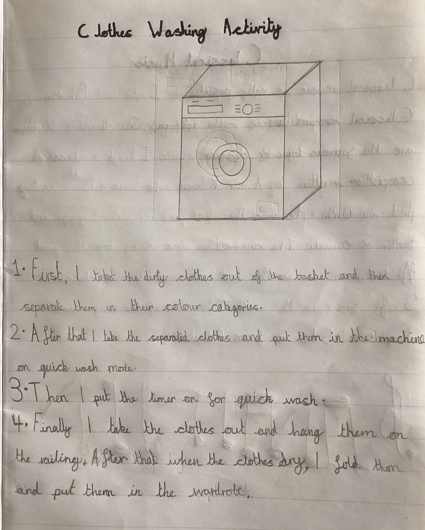 Clothes Washing Activity
1. First, I take the dirty clothes out of the basket and then
separate them in their colour categories.
2. After that I take the separated clothes and put them in the machine
on quick wash mode.
3. Then I put the timer on for quick wash.
4. Finally I take the clothes out and hang them on
the railing, After that when the clothes dry, I fold them
and put them in the wardrobe.